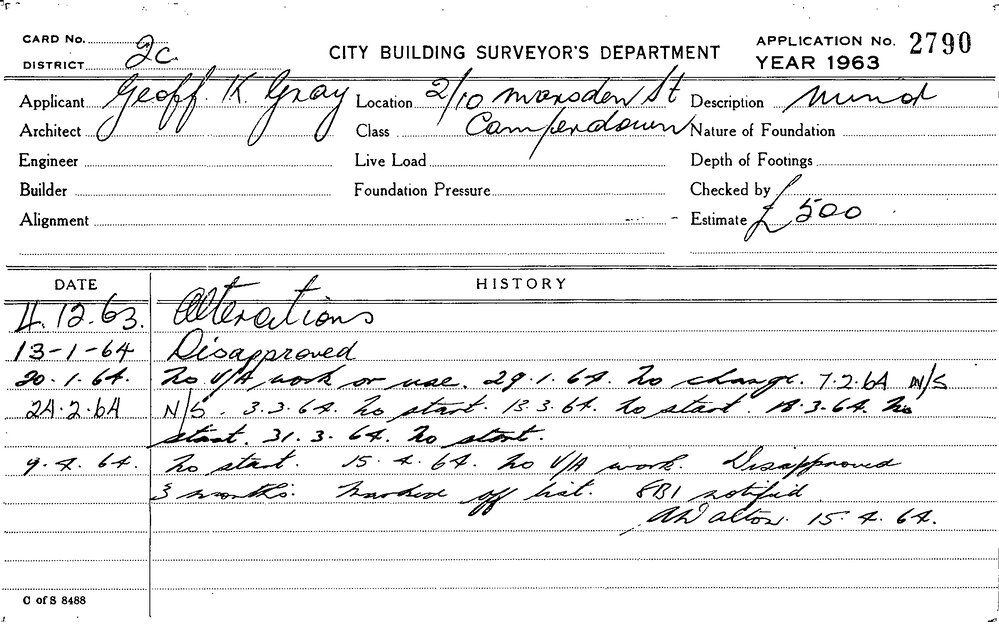 CARD No. CITY BUILDING SURVEYOR'S DEPARTMENT APPLICATION No. 2790
DISTRICT 2c. YEAR 1963
Applicant Geoff. K. Gray Location 2/10 Marsden St Description Mind
Architect Class Camperdown Nature of Foundation
Engineer Live Load Depth of Footings
Builder Foundation Pressure Checked by
Alignment Estimate £500
DATE HISTORY
4.12.63. Alterations
13-1-64 Disapproved
20.1.64. No V/A work or use. 29.1.64. No change. 7.2.64 N/S
24.2.64 N/S. 3.3.64. No start. 13.3.64. No start. 18.3.64. No
start. 31.3.64. No start.
9.4.64. No start. 15.4.64. No V/A work. Disapproved
3 months. Marked off list. SBI notified
15.4.64.
C of S 8488